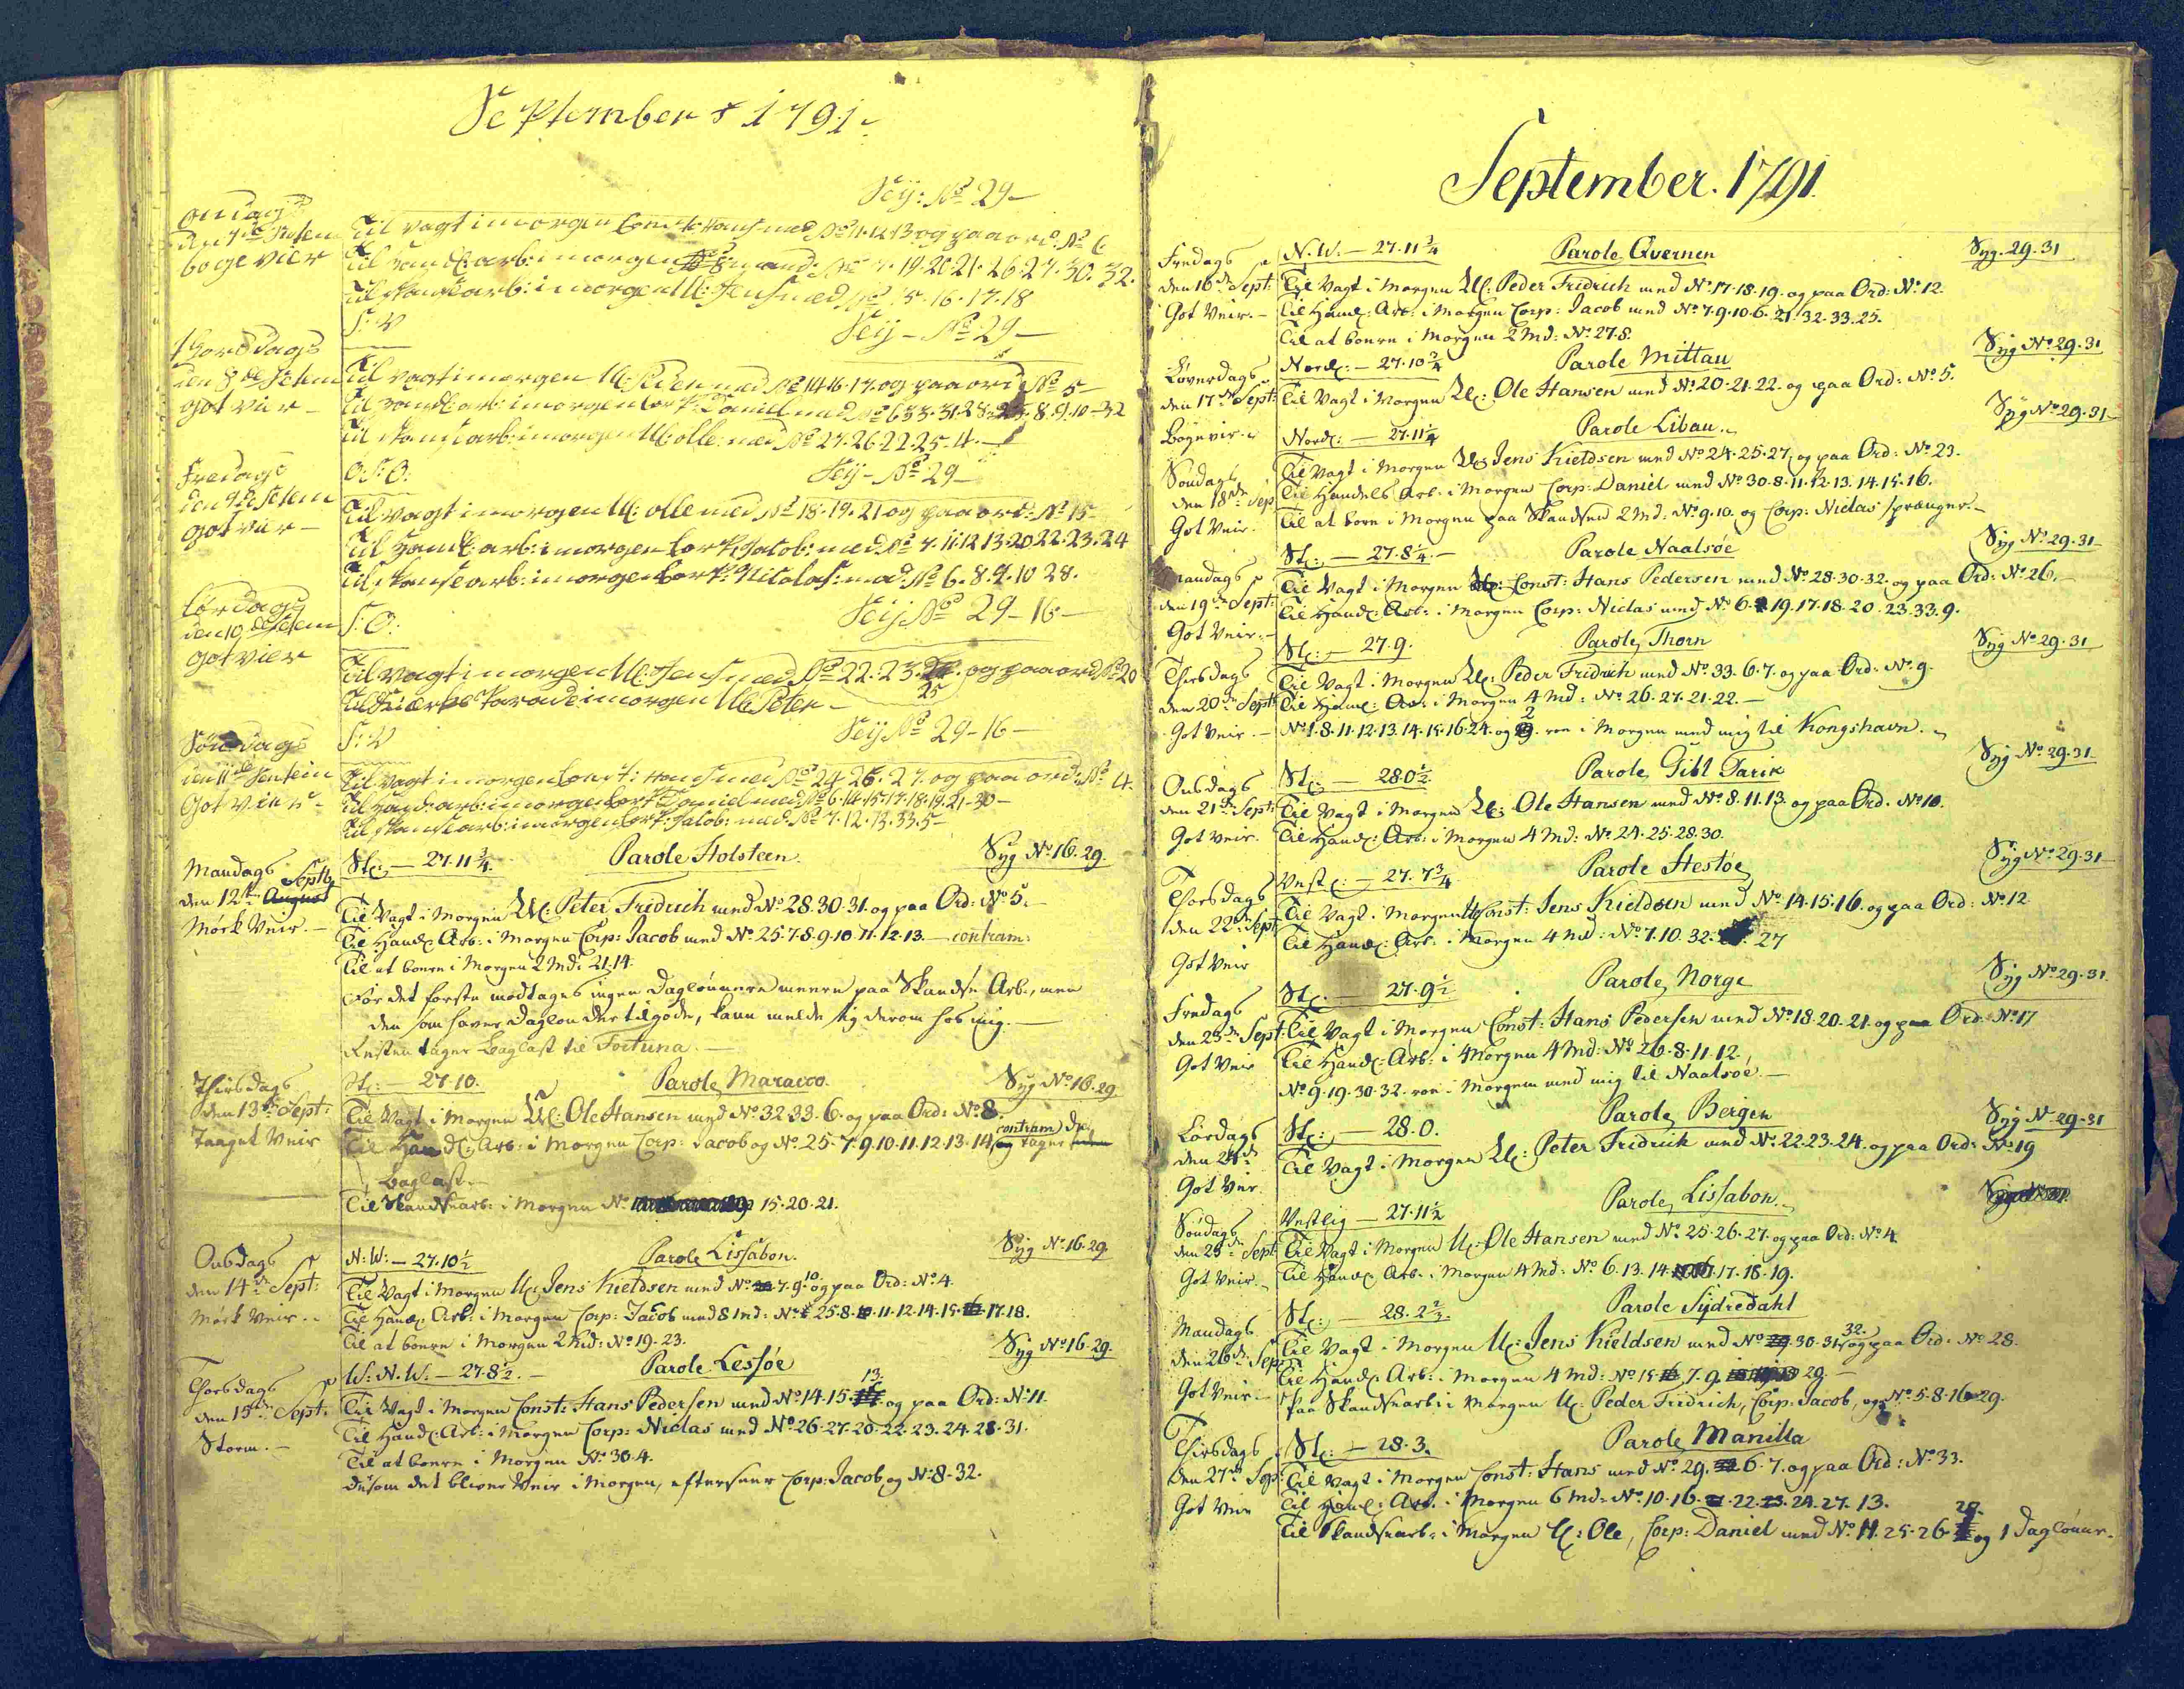 September 1791.
Seij: No 29-
onsdags
den 7de Sepem
boge vier
Til vagt i morgen Const: Hans med No 11.12.13 og paa ord. No 6
Til Handl: arb: i morgen mand: No 7.19.20.21.26.27.30.32.
Til skanse arb: i morgen Uc: Jens med No 15.16.17.18
S: V
Seij - No 29-
Thorsdags
den 8de
got vier -
Til vagt i morgen Uc Peder med No 14.16.17. og paa ord No 5-
Til Handl arb: i morgen Corp: Daniel med No 6.33.31.28.23.8.9.10-32
Til skanse arb: i morgen Uc: olle: med No 27.26.22.25.4.-
Fredags
den 9de
got vier -
O.S.O.
Seij - No 29-
Til vagt i morgen Uc: olle med No 18.19.21 og paa ord: No 15
Til Handl: arb: i morgen Corp: Jacob: med No 7.11.12 13.20 22.23.24
Til skanse arb: i morgen Corp: Nicolas: med: No 6.8.9.10 28.
Seij No 29-16-
Lørdags
den 10de
got vier
S: O:
Til vagt i morgen Uc: Jens med No 22.23. og paa ord No 20
25
Til Kierke Parade i morgen Uc Peter -
Seij No 29-16-
Søndags
den 11te
Got vier -
S: V
Til vagt i morgen Const: Hans med No 24 26.27. og paa ord: No 4.
Til Hand: arb: i morgen Corp Daniel med No 6.14.15.17.18.19.21-30-
Til skanse arb: i morgen Corp: Jacob: med No 7.12.13.33.5-
Mandags
Septb
den 12te August
Mørk Veir. -
Stc: - 27.11 3/4.
Parole Holsteen.
Syg No 16.29.
Til Vagt i Morgen Uc: Peter Fridrich med No 28.30.31. og paa Ord: No 5.
Til Handl: Arb: i Morgen Corp: Jacob med No 25.7.8.9.10.11.12.13. - contram:
Til at boere i Morgen 2 Md: 21.14.
For det første modtages ingen Dagløunere meere paa Skandse Arb:, men
den som haver Dagløn der tilgode, kann melde sig derom hos mig. -
Resten tager Baglast til Fortuna. -
Thirsdags
den 13de Sept:
Taaget Veir
Stc: - 27.10.
Parole Marocco.
Syg No 16.29
Til Vagt i Morgen Uc: Ole Hansen med No 32.33.6. og paa Ord: No 8.
Til Handl: Arb: i Morgen Corp: Jacob og No 25.7.9.10.11.12.13.14, contram) og tager
Baglast. -
Til Skandsearb: i Morgen No 15.20.21.
Onsdags
den 14de Sept:
Mørk Veir. -
N: W: - 27.10 1/2
Parole Lissabon.
Syg No 16.29.
Til Vagt i Morgen Uc: Jens Kieldsen med No 7.9. 10 og paa Ord: No 4.
Til Handl: Arb: i Morgen Corp: Jacob med 8 Md: No 25.8.11.12.14.15.17.18.
Til at boere i Morgen 2 Md: No 19.23.
Thorsdags
den 15de Sept:
Storm. -
W: N. W. - 27.8 1/2. -
Parole Lessøe
Syg No 16.29.
Til Vagt i Morgen Const: Hans Pedersen med No 14.15. 13. og paa Ord: No 11.
Til Handl: Arb: i Morgen Corp: Niclas med No 26.27.20.22.23.24.28.31.
Til at boere i Morgen No 30.4.
dersom det bliver Veir i Morgen, efterseer Corp: Jacob og No 8.32.
September. 1791.
Fredags
den 16de Sept:
Got Veir. -
N. W. - 27.11 3/4
Parole Qvernen
Syg. 29.31
Til Vagt i Morgen Uc: Peder Fridrich med No 17.18.19. og paa Ord: No 12.
Til Handl: Arb: i Morgen Corp: Jacob med No 7.9.10.6.21.32.33.25.
Til at boere i Morgen 2 Md: No 27.8.
Løverdags
den 17de Sept:
Bøgevir. -
Nordl: - 27.10 3/4
Parole Mittau
Syg No 29.31
Til Vagt i Morgen Uc: Ole Hansen med No 20.21.22. og paa Ord: No 5.
Søndags
den 18de Sep
Got Veir.
Nordl: - 27.11 1/4
Parole Libau.
Syg No 29.31-
Til Vagt i Morgen Uc: Jens Kieldsen med No 24.25.27. og paa Ord: No 23.
Til Handels Arb: i Morgen Corp: Daniel med No 30.8.11.12.13.14.15.16.
Til at bore i Morgen paa Skandsen 2 Md: No 9.10. og Corp: Niclas sprænger. -
Mandags
den 19de Sept:
Got Veir. -
St: - 27.8 1/4. -
Parole Naalsøe
Syg No 29.31-
Til Vagt i Morgen Const: Hans Pedersen med No 28.30.32. og paa Ord: No 26. -
Til Handl: Arb: i Morgen Corp: Niclas med No 6.19.17.18.20.23.33.9.
Thirsdags
den 20de Sept:
Got Veir. -
St: - 27.9.
Parole, Thorn
Syg No 29.31
Til Vagt i Morgen Uc: Peder Fridrich med No 33.6.7. og paa Ord: No 9.
Til Handl: Arb: i Morgen 4 Md: No 26.27.21.22. -
No 1.8.11.12.13.14.15.16.24. og 2 roe i Morgen med mig til Kongshavn.
Onsdags
den 21de Sept:
Got Veir.
St: - 28.0 1/2.
Parole, Gibl Tarik
Syg No 29.31.
Til Vagt i Morgen Uc: Ole Hansen med No 8.11.13. og paa Ord. No 10.
Til Handl: Arb: i Morgen 4 Md: No 24.25.28.30.
Thorsdags
den 22de Sept
Got Veir
Vestl: - 27.7 3/4
Parole Hestøe
Syg No 29.31-
Til Vagt i Morgen Const: Jens Kieldsen med No 14.15.16. og paa Ord: No 12
Til Handl: Arb: i Morgen 4 Md: No 7.10.32. 27
Fredags
den 23de Sept:
Got Veir
St: - 27.9 1/2
Parole, Norge
Syg No 29.31.
Til Vagt i Morgen Const: Hans Pedersen med No 18.20.21. og paa Ord: No 17
Til Handl: Arb: i Morgen 4 Md: No 26.8.11.12.
No 9.19.30.32. roe i Morgen med mig til Naalsøe. -
Lørdags
den 24de
Got Veir.
St: - 28.0.
Parole, Bergen
Syg No 29.31
Til Vagt i Morgen Uc: Peter Fridrich med No 22.23.24. og paa Ord: No 19
Søndags
den 25de Sept
Got Veir. -
Vestlig - 27.11 1/2
Parole, Lissabon.
Til Vagt i Morgen Uc: Ole Hansen med No 25.26.27. og paa Ord: No 4.
Til Handl: Arb: i Morgen 4 Md: No 6.13.14.17.18.19.
Mandags
den 26de Sep
Got Veir. -
St: - 28.2 2/3.
Parole Sydredahl
Til Vagt i Morgen Uc: Jens Kieldsen med No 30.31. 32. og paa Ord: No 28.
Til Handl: Arb: i Morgen 4 Md: No 15.7.9. 29. -
Paa Skandsearb: i Morgen Uc: Peder Fridrich, Corp: Jacob, og No 5.8.16.29.
Thirsdags
den 27de Sep:
Got Veir
St: - 28.3.
Parole, Manilla
Til Vagt i Morgen Const: Hans med No 29.6.7. og paa Ord: No 33.
Til Handl: Arb: i Morgen 6 Md: No 10.16.22.23.24.27.13.
Til Skandsearb: i Morgen Uc: Ole, Corp: Daniel med No 11.25.26. 29. og 1 Dagløner.